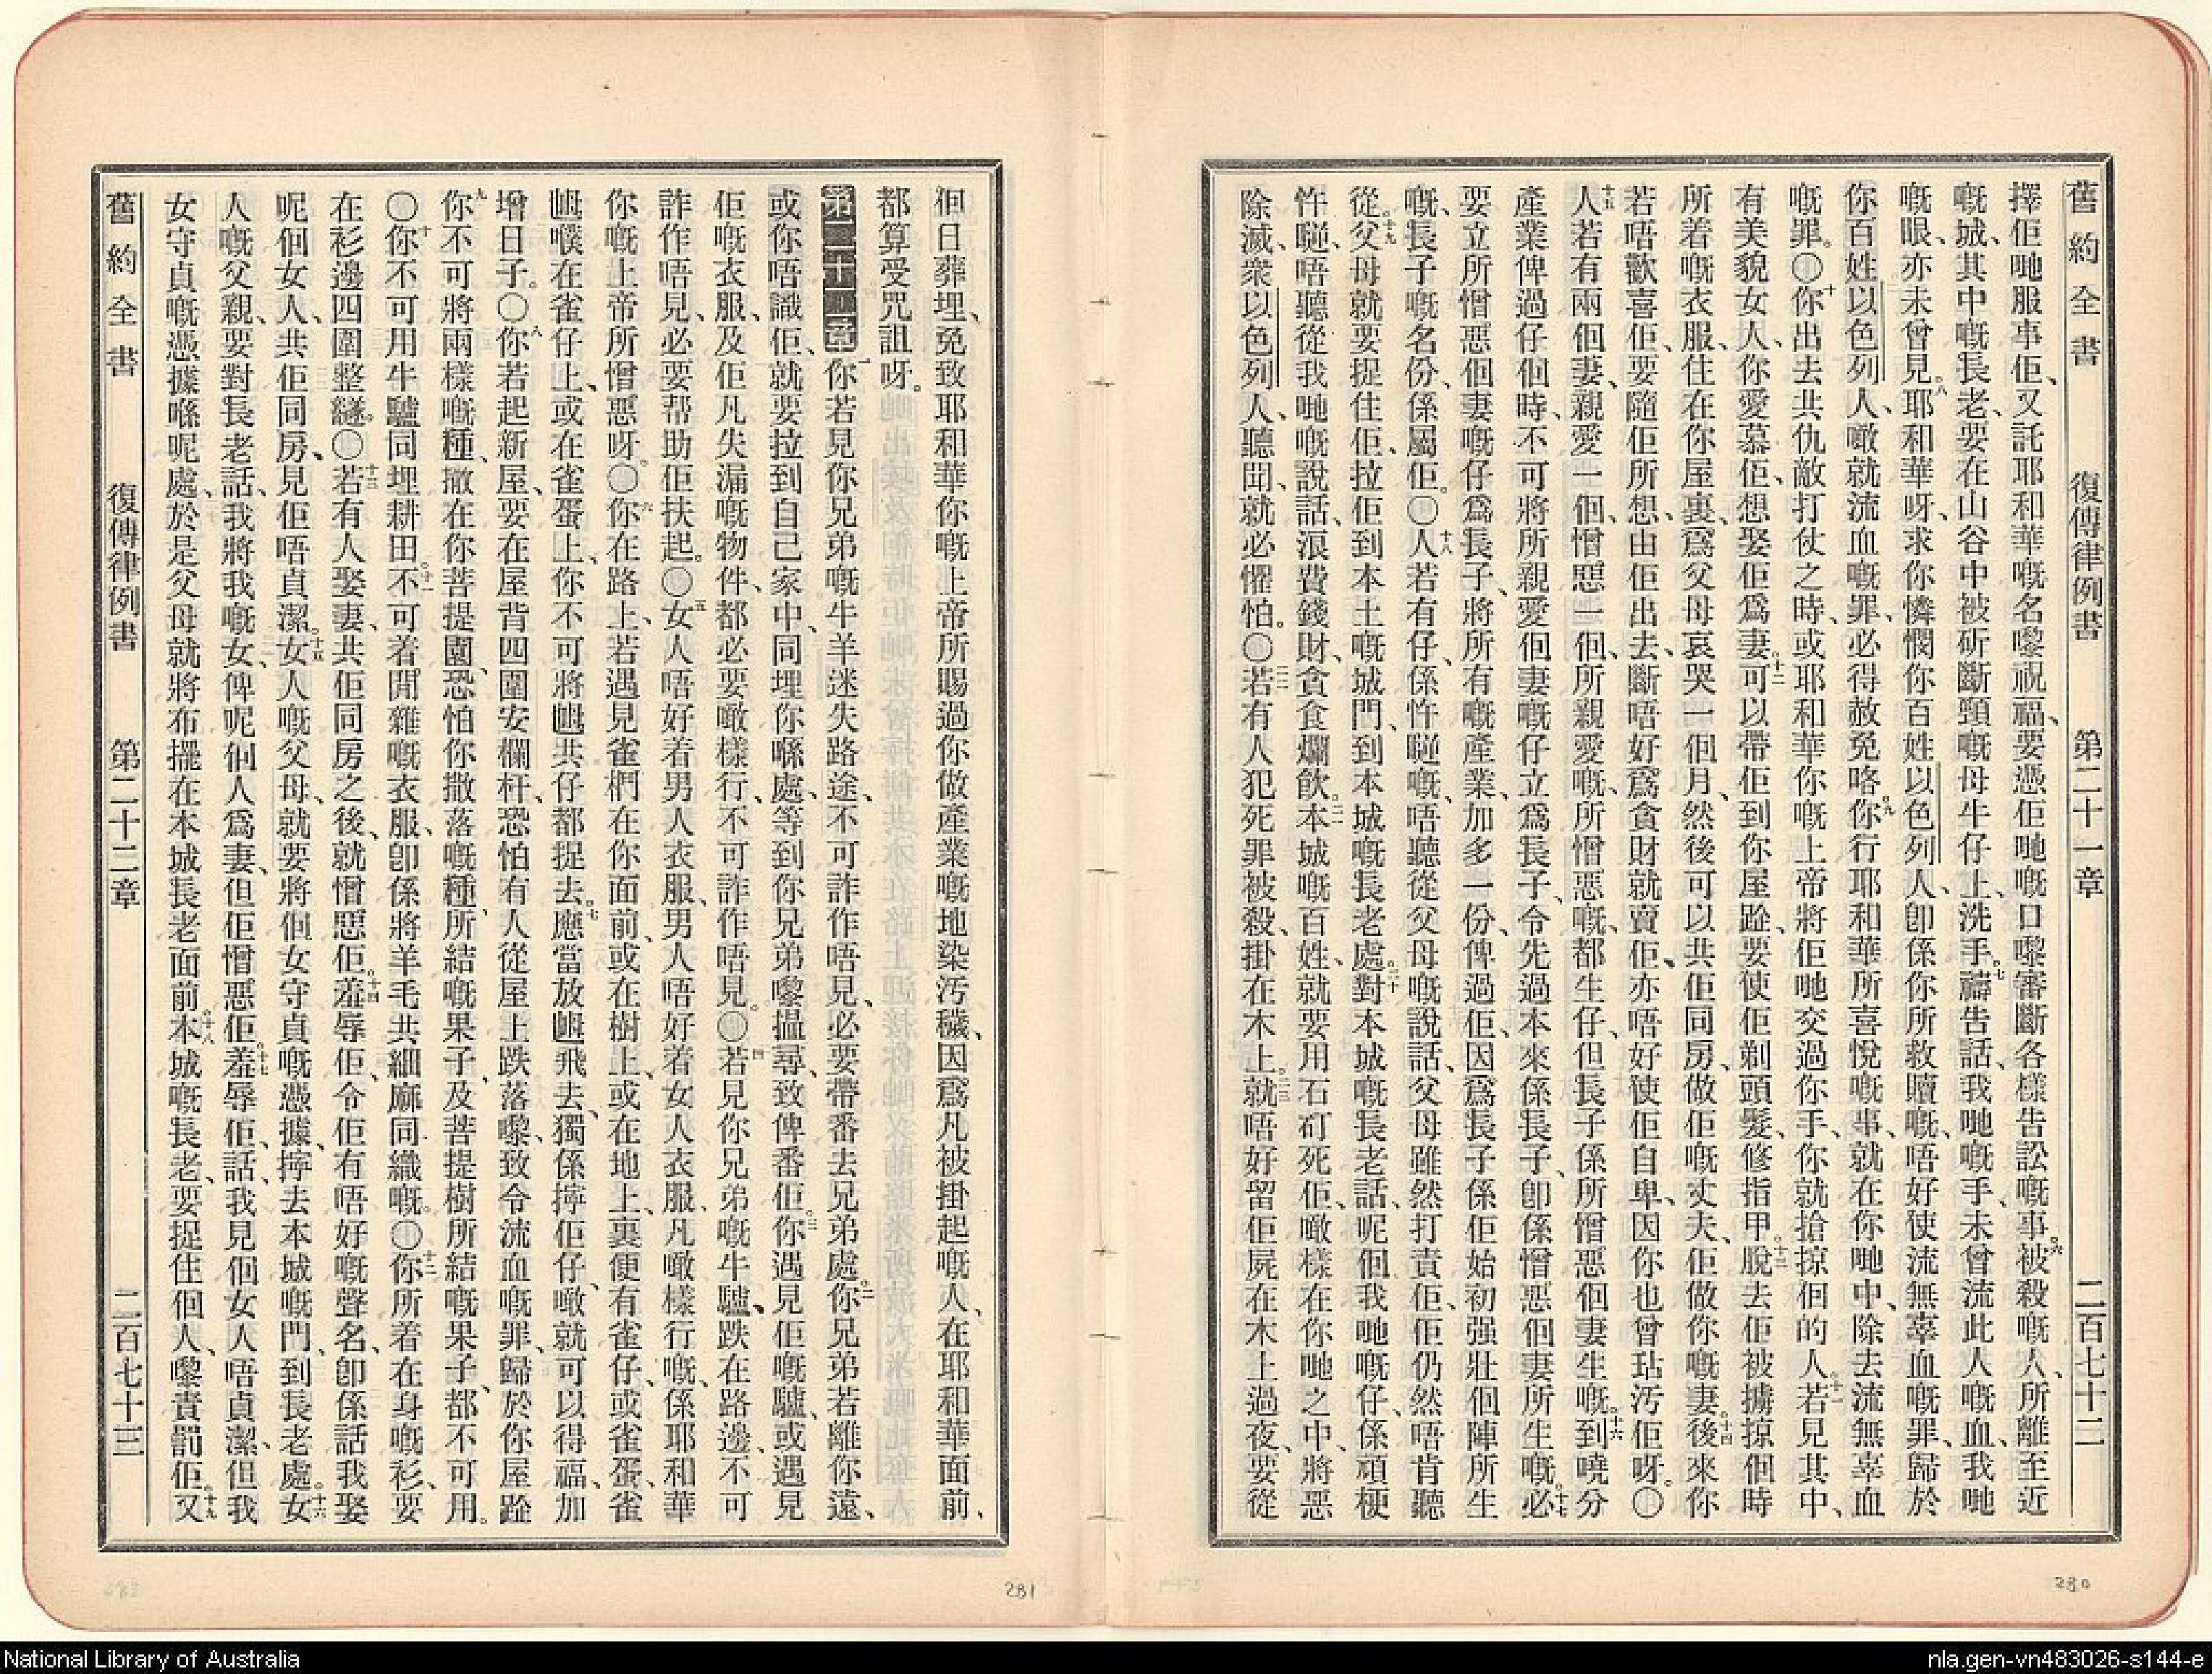 舊約全書 復傳律例書 第二十一章 二百七十二
擇佢哋服事佢、又託耶和華嘅名嚟祝福、要憑佢哋嘅口嚟審斷各樣告訟嘅事。六被殺嘅人、所離至近
嘅城、其中嘅長老、要在山谷中被斫斷頸嘅母牛仔上、洗手。七禱告話、我哋嘅手、未曾流此人嘅血、我哋
嘅眼、亦未曾見。八耶和華呀、求你憐憫你百姓以色列人、卽係你所救贖嘅、唔好使流無辜血嘅罪、歸於
你百姓以色列人、噉就流血嘅罪、必得赦免咯。九你行耶和華所喜悅嘅事、就在你哋中、除去流無辜血
嘅罪。〇十你出去共仇敵打仗之時、或耶和華你嘅上帝將佢哋交過你手、你就搶掠佪的人。十一若見其中、
有美貌女人、你愛慕佢、想娶佢爲妻。十二可以帶佢到你屋跧、要使佢剃頭髮、修指甲。十三脫去佢被擄掠個時
所着嘅衣服、住在你屋裏、爲父母哀哭一個月、然後可以共佢同房、做佢嘅丈夫、佢做你嘅妻。十四後來你
若唔歡喜佢、要隨佢所想、由佢出去、斷唔好爲貪財就賣佢、亦唔好使佢自卑、因你也曾玷汚佢呀。〇
十五人若有兩個妻、親愛一個、憎惡一個、所親愛嘅、所憎惡嘅、都生仔、但長子係所憎惡個妻生嘅。十六到曉分
產業俾過仔個時、不可將所親愛個妻嘅仔立爲長子、令先過本來係長子、卽係憎惡個妻所生嘅。十七必
要立所憎惡個妻嘅仔爲長子、將所有嘅產業、加多一份、俾過佢、因爲長子係佢始初强壯個陣所生
嘅、長子嘅名份、係屬佢。〇十八人若有仔、係忤𢤹嘅、唔聽從父母嘅說話、父母雖然打責佢、佢仍然唔肯聽
從。十九父母就要捉住佢、拉佢到本土嘅城門、到本城嘅長老處。二十對本城嘅長老話、呢個我哋嘅仔、係頑梗
忤𢤹、唔聽從我哋嘅說話、浪費錢財、貪食爛飲。二一本城嘅百姓、就要用石矴死佢、噉樣在你哋之中、將惡
除滅、衆以色列人、聽聞、就必懼怕。〇二二若有人犯死罪被殺、掛在木上。二三就唔好留佢屍在木上過夜、要從
佪日葬埋、免致耶和華你嘅上帝所賜過你做產業嘅地染汚穢、因爲凡被掛起嘅人、在耶和華面前、
都算受咒詛呀。
第二十二章 一你若見你兄弟嘅牛羊迷失路途、不可詐作唔見、必要帶番去兄弟處。二你兄弟若離你遠、
或你唔識佢、就要拉到自己家中、同埋你喺處、等到你兄弟嚟搵尋、致俾番佢。三你遇見佢嘅驢、或遇見
佢嘅衣服、及佢凡失漏嘅物件、都必要噉樣行、不可詐作唔見。〇四若見你兄弟嘅牛驢、跌在路邊、不可
詐作唔見、必要帮助佢扶起。〇五女人唔好着男人衣服、男人唔好着女人衣服、凡噉樣行嘅、係耶和華
你嘅上帝所憎惡呀。〇六你在路上、若遇見雀𣖕在你面前、或在樹上、或在地上、裏便有雀仔、或雀蛋、雀
𡜵噗在雀仔上、或在雀蛋上、你不可將𡜵共仔都捉去。七應當放𡜵飛去、獨係擰佢仔、噉就可以得福、加
增日子。〇八你若起新屋、要在屋背四圍安欄杆、恐怕有人從屋上跌落嚟、致令流血嘅罪、歸於你屋跧
九你不可將兩樣嘅種、撒在你菩提園、恐怕你撒落嘅種、所結嘅果子、及菩提樹所結嘅果子、都不可用。
〇十你不可用牛驢同埋耕田。十一不可着閒雜嘅衣服、卽係將羊毛共細蔴同織嘅。〇十二你所着在身嘅衫、要
在衫邊四圍整繸。〇十三若有人娶妻、共佢同房之後、就憎惡佢。十四羞辱佢、令佢有唔好嘅聲名、卽係話我娶
呢個女人、共佢同房、見佢唔貞潔。十五女人嘅父母、就要將個女守貞嘅憑據、擰去本城嘅門、到長老處。十六女
人嘅父親、要對長老話、我將我嘅女、俾呢個人爲妻、但佢憎惡佢。十七羞辱佢、話、我見個女人唔貞潔、但我
女守貞嘅憑據喺呢處、於是父母就將布擺在本城長老面前。十八本城嘅長老、要捉住個人、嚟責罰佢。十九又
舊約全書 復傳律例書 第二十三章 二百七十三
281
280
National Library of Australia
nla.gen-vn483026-s144-e